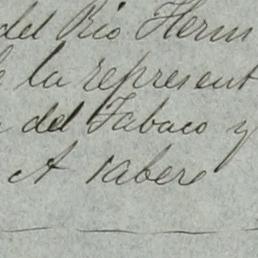 del Rio Herm
la represent
del Tabaco y
A saber